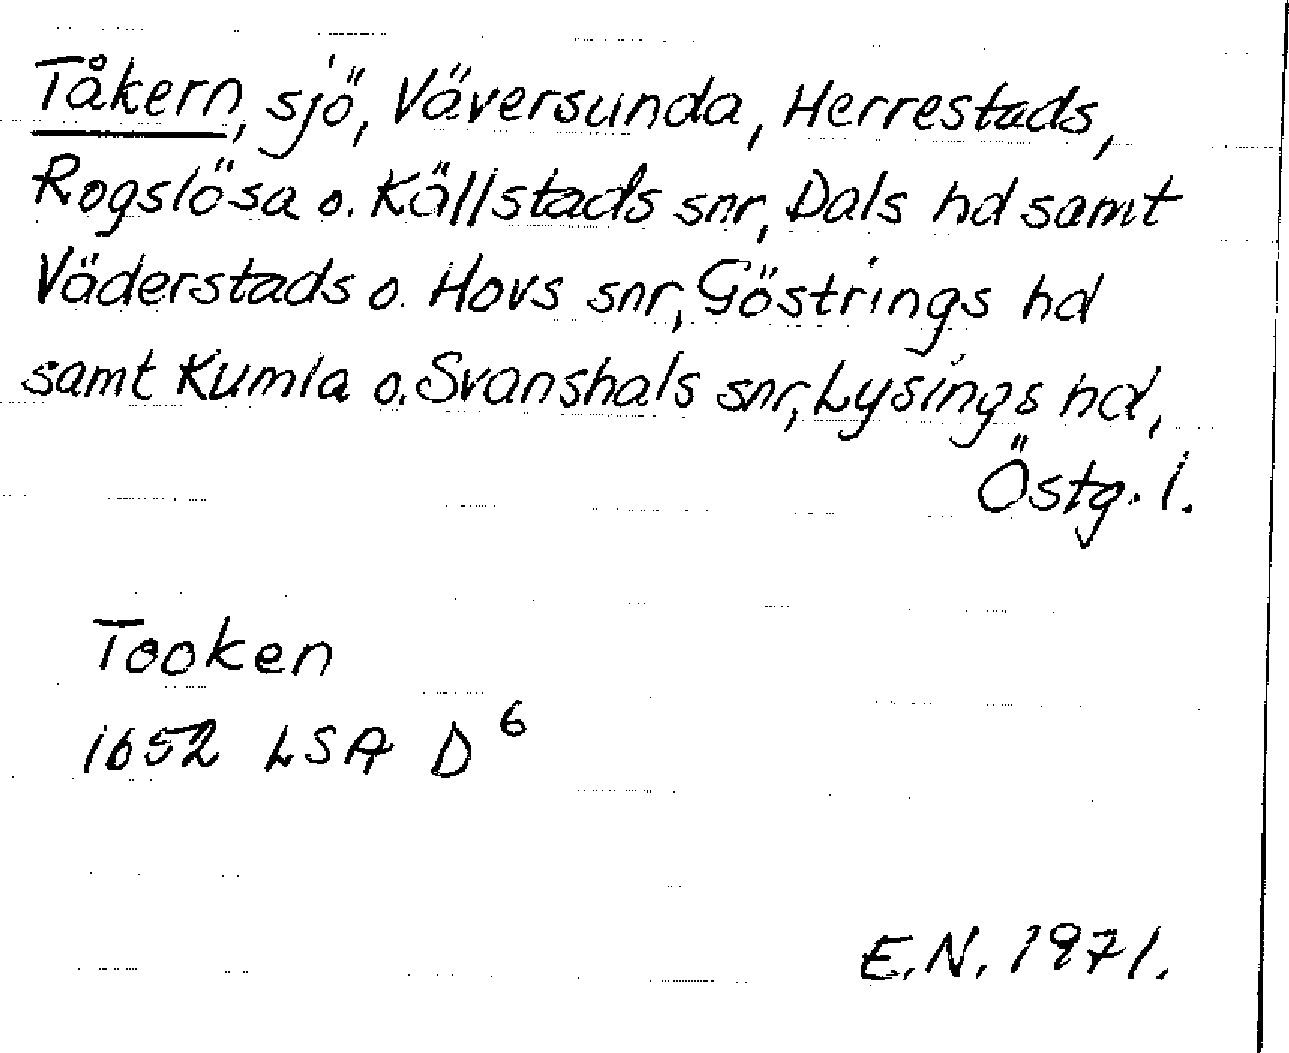 Tåkern, sjö, Väversunda, Herrestads,
Rogslösa o. Källstads snr, Dals hd samt
Väderstads o. Hovs snr, Göstrings hd
samt Kumla o. Svanshals snr, Lysings hd,
Östg. l.
Tooken
1652 LSA D⁶
E.N. 1971.